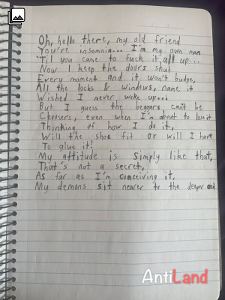 Oh, hello there, my old friend
You're insomnia... I'm my own man
'Til you came to fuck it all up...
Now I keep the doors shut
Every moment and it won't budge,
All the locks & windows, name it
Wished I never woke up...
But I guess the beggars can't be
Choosers, even when I'm about to lose it
Thinking of how I do it,
Will the shoe fit or will I have
To glue it?
My attitude is simply like that,
That's not a secret,
As far as I'm conceiving it,
My demons sit nearer to the deeper end.
AntiLand